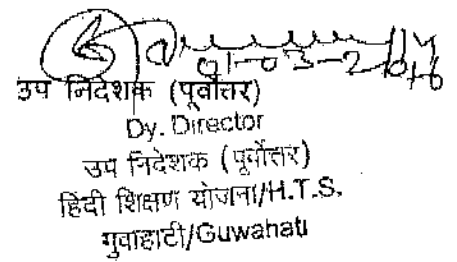 01-03-2016
उप निदेशक (पूर्वोत्तर)
Dy. Director
उप निदेशक (पूर्वोत्तर)
हिंदी शिक्षण योजना/H.T.S.
गुवाहाटी/Guwahati